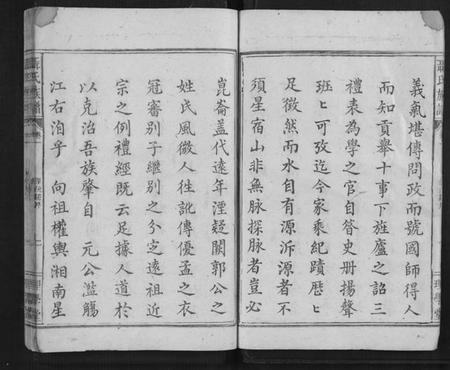 義氣堪傳問政而號國師得人
而知貢舉十事下旌廬之詔三
禮表為學之官自昔史册揚聲
班〻可孜迄今家乘紀蹟歷〻
足徵然而水自有源泝源者不
須星宿山非無脉探脉者豈必
崑崙盖代遠年湮疑關郭公之
姓氏風微人往訛傳優孟之衣
冠審別子繼別之分定遠祖近
宗之例禮經既云足據人道於
以克治吾族肇自 元公濫觴
江右洎乎 向祖權輿湘南星